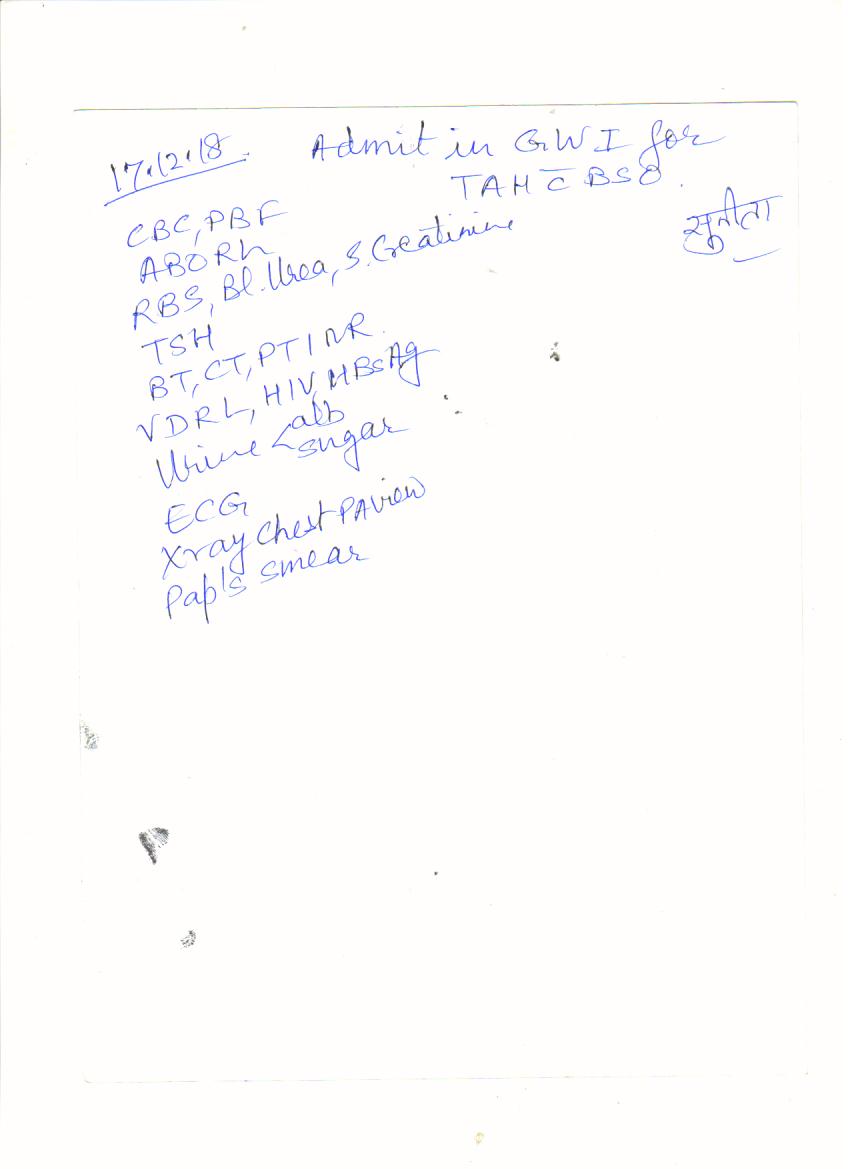 17.12.18. Admit in GWI for
TAH c̄ BSO.
सुनीता
CBC, PBF
ABORh
RBS, Bl. Urea, S. Creatinine
TSH
BT, CT, PTINR.
VDRL, HIV, HBsAg
Urine < alb
sugar
ECG
Xray Chest PA view
Pap's smear